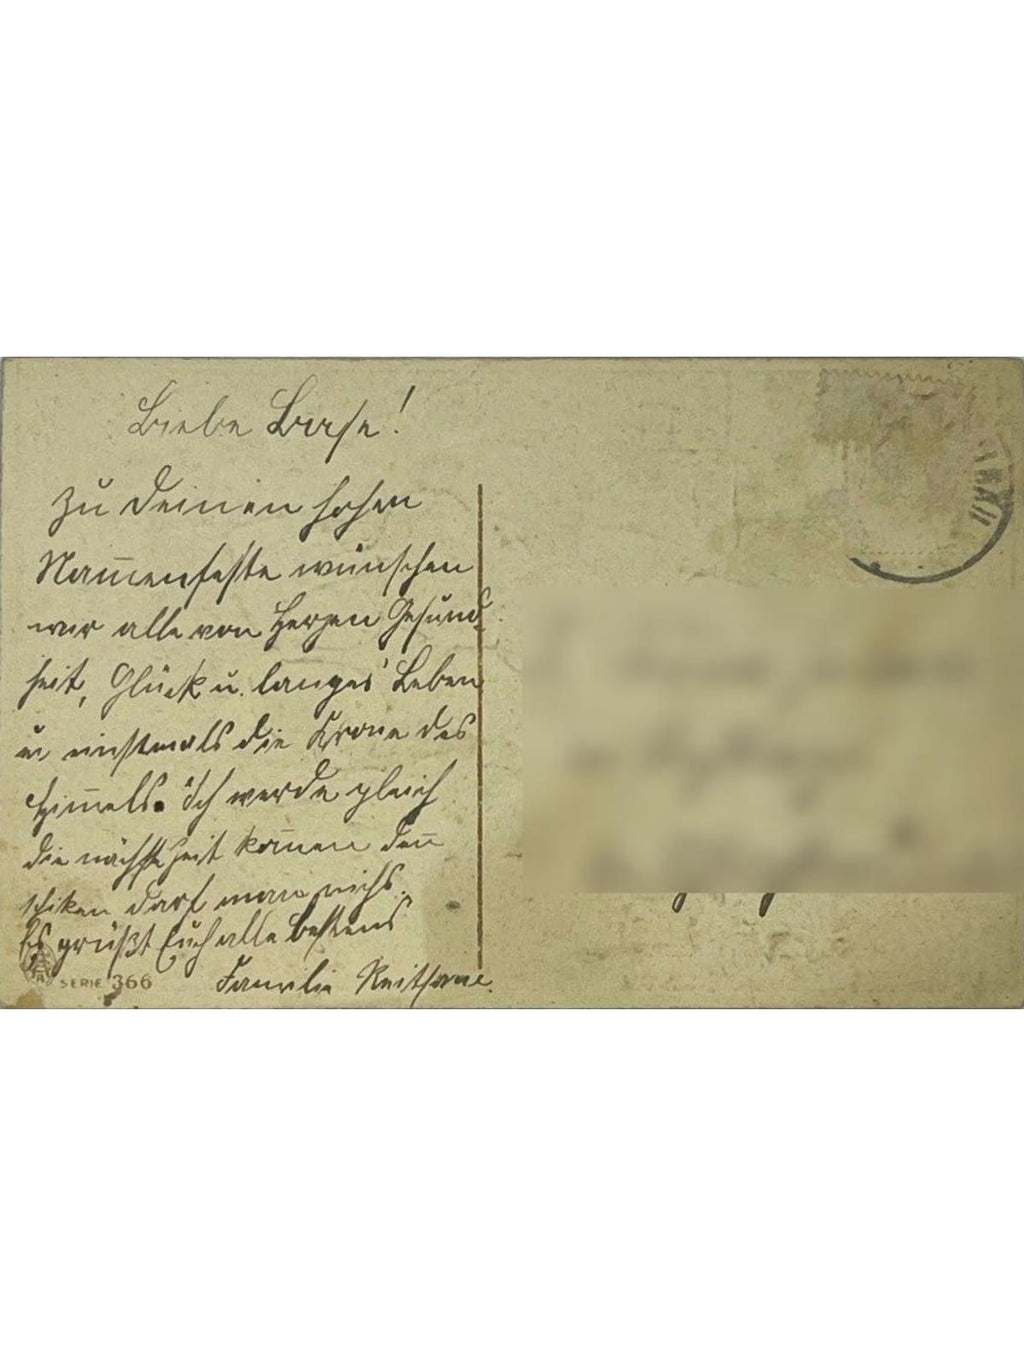 Liebe Base!
Zu Deinen hohen
Nam̄enfeste wünschen
wir alle von Herzen Gesund-
heit, Glück u. langes Leben
u einstmals die Krone des
Him̄els. Ich werde gleich
die nächste Zeit kom̄en den̄
schiken darf man nichs.
Es grüßt Euch alle bestens
Familie
SERIE 366